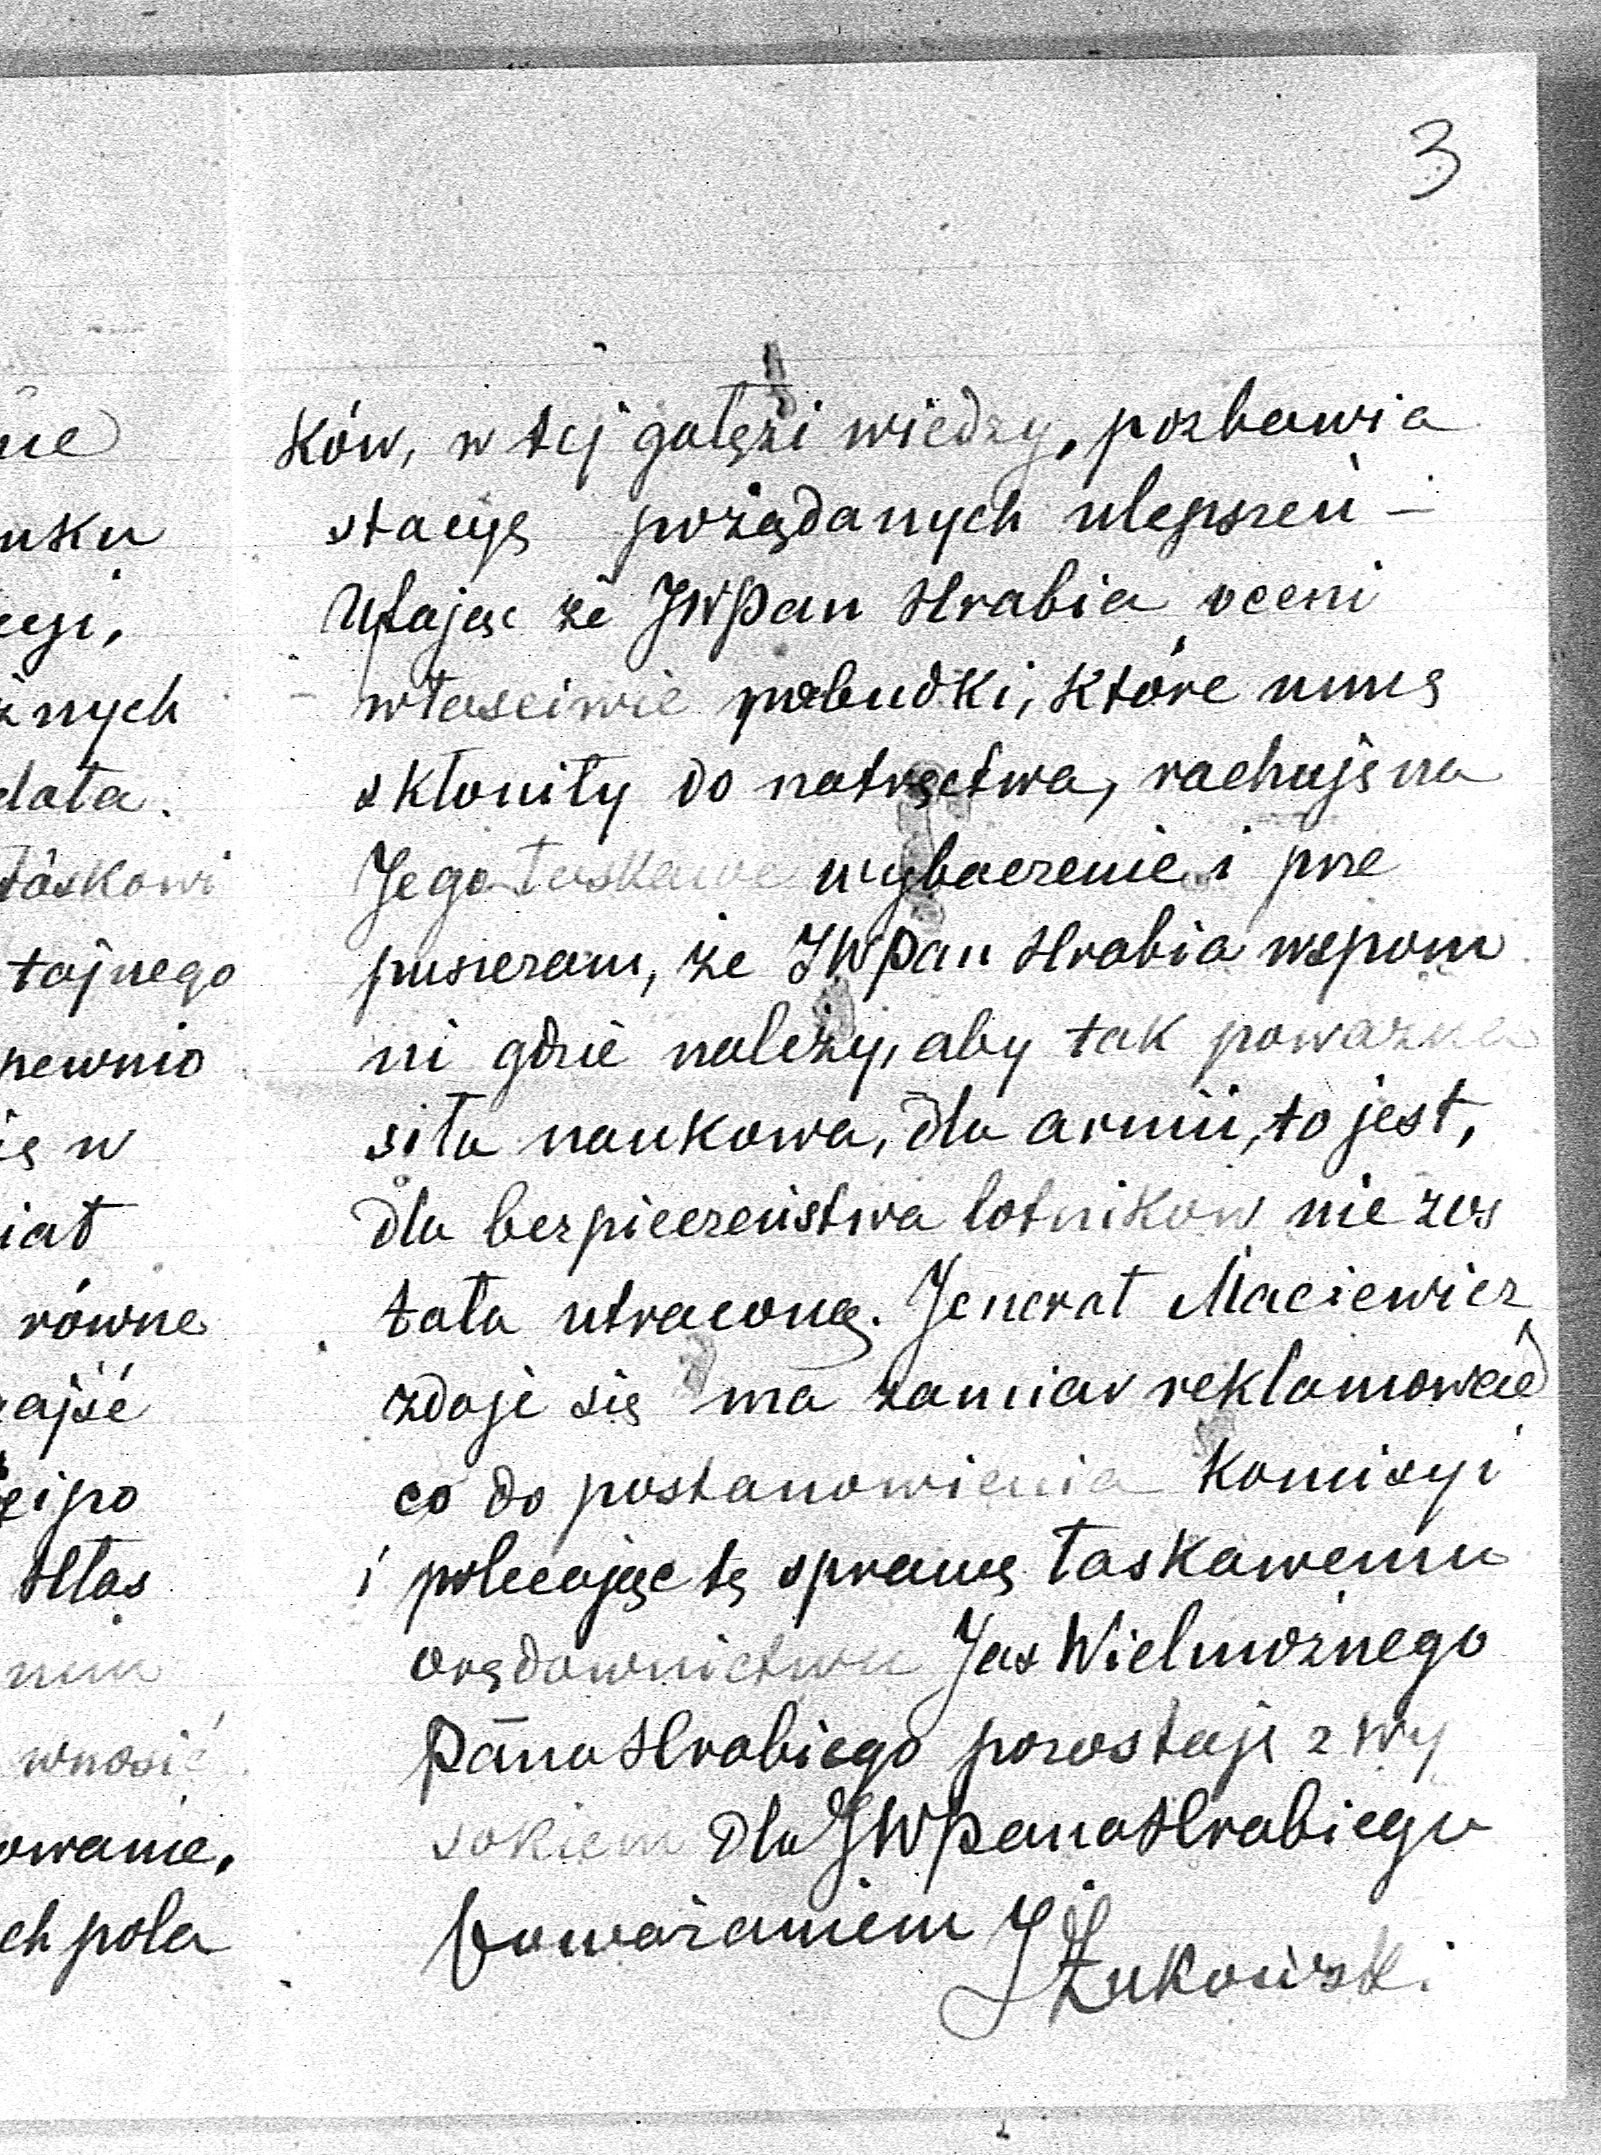 3
ków, w tej gałęzi wiedzy, pozbawia
stacyę pożądanych ulepszeń –
Ufając że JWPan Hrabia oceni
właściwie pobudki, które mnię
skłoniły do natręctwa, rachuję na
Jego łaskawe wybaczenie i prze
puszczam, że JWPan Hrabia wspom
ni gdzie należy, aby tak poważna
siła naukowa, dla armii, to jest,
dla bezpieczeństwa lotników nie zos
tała utraconą. Jenerał Maciewicz
zdaje się ma zamiar reklamować
co do postanowienia Komisyi
i polecając tę sprawę łaskawemu
orędownictwu Jaś Wielmożnego
Pana Hrabiego pozostaję z wy
sokiem dla JWPana Hrabiego
Poważaniem J Żukowski
nku
cyi,
żnych
tajnego
pewnio
ię w
iał
równe
zajść
i po
Hłas
wnosić
owanie,
ch pola